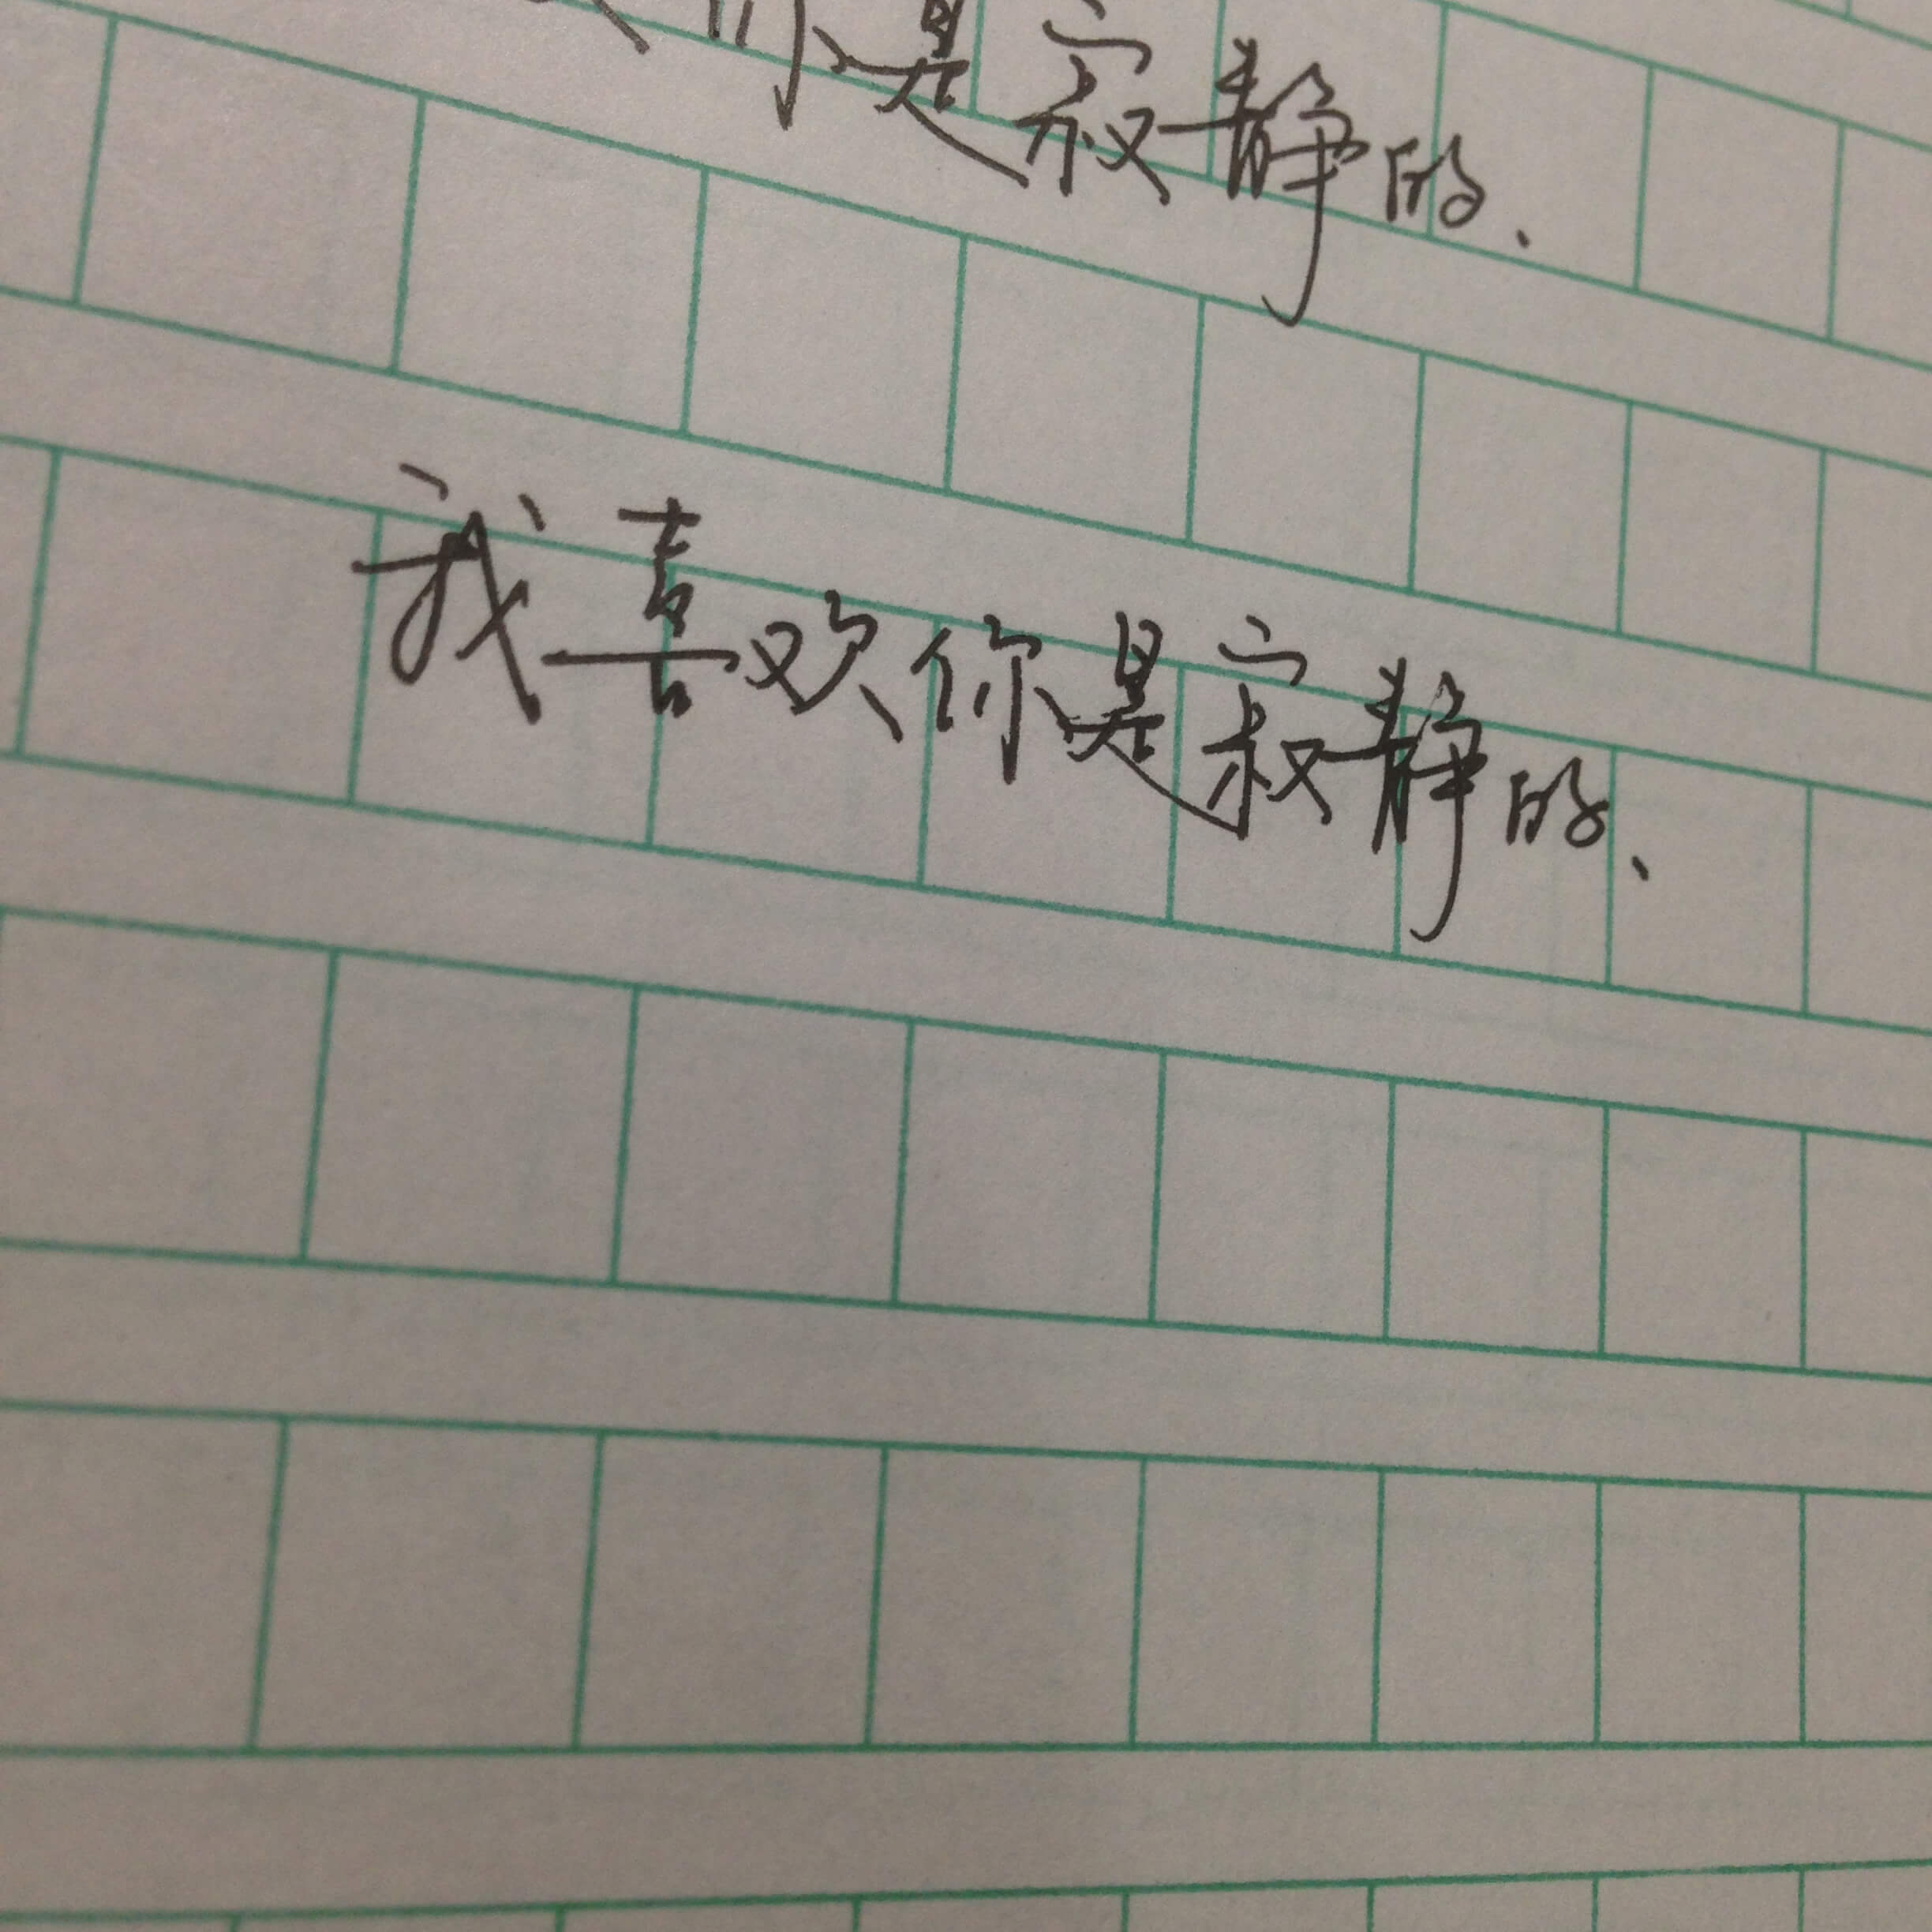 你是寂静的、
我喜欢你是寂静的、